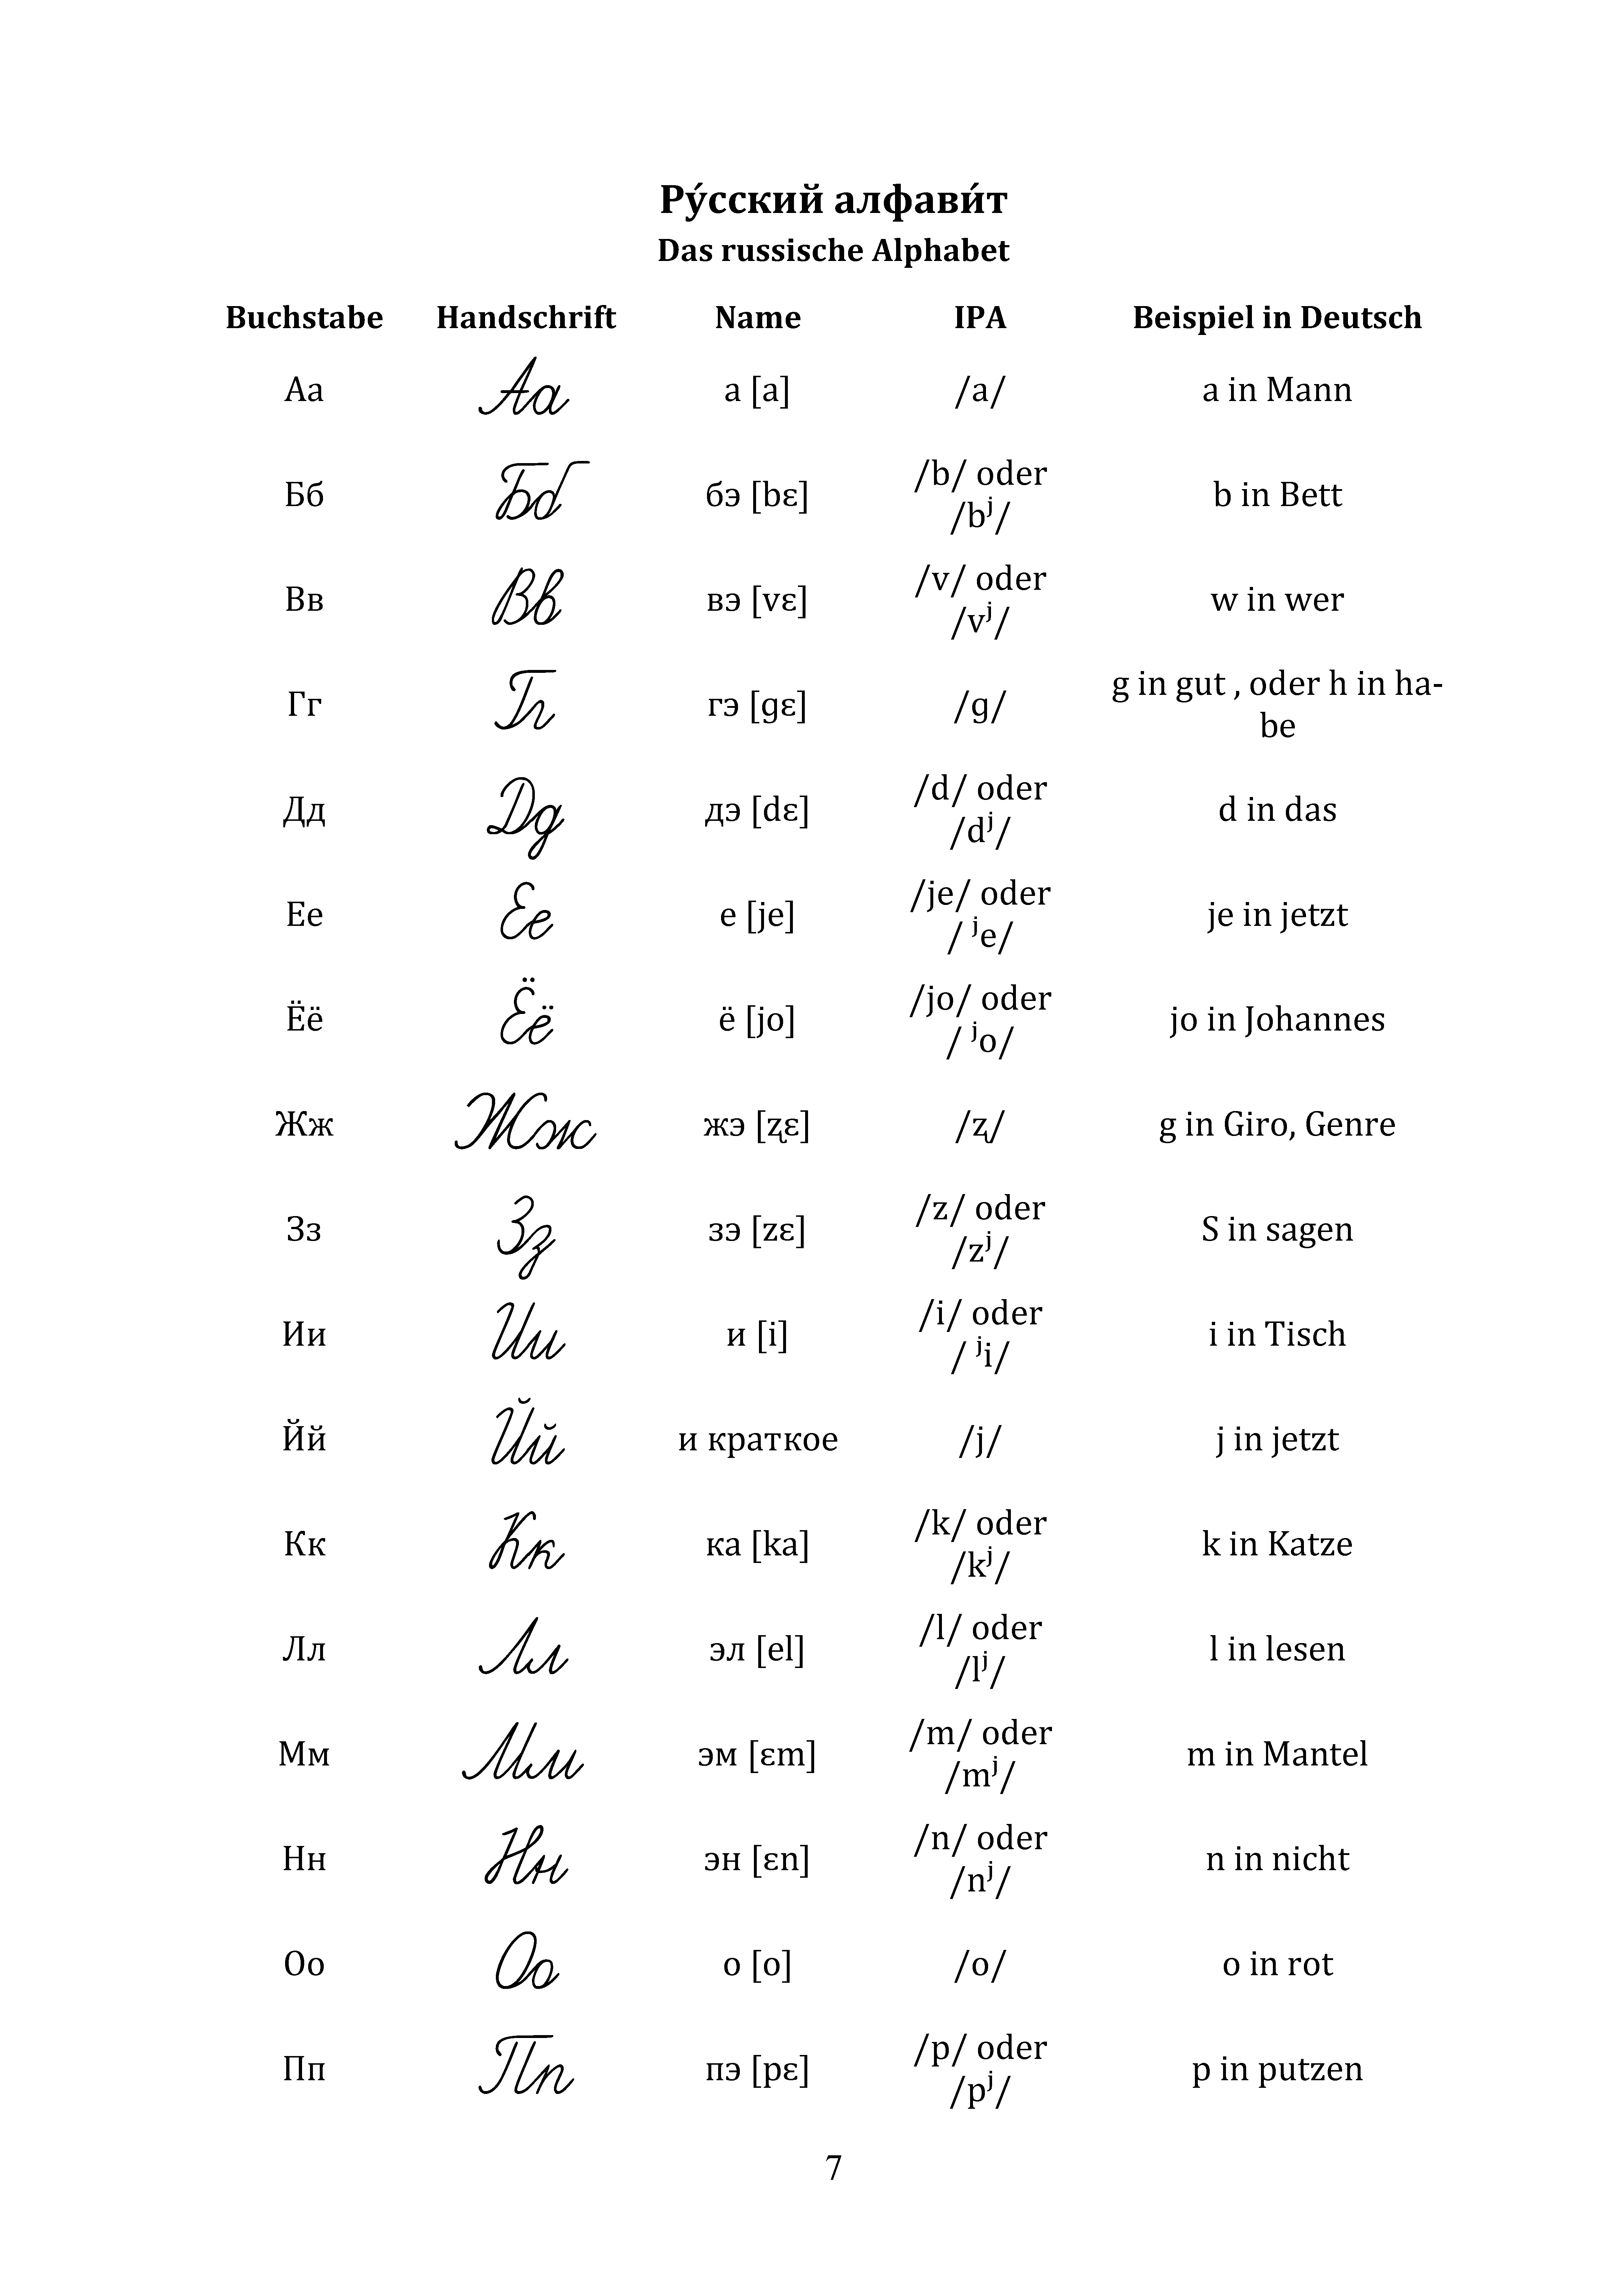 Ру́сский алфави́т
Das russische Alphabet
Buchstabe Handschrift Name IPA Beispiel in Deutsch
Аа Аа а [a] /a/ a in Mann
Бб Бб бэ [bɛ] /b/ oder /bʲ/ b in Bett
Вв Вв вэ [vɛ] /v/ oder /vʲ/ w in wer
Гг Гг гэ [gɛ] /g/ g in gut , oder h in ha-
be
Дд Дд дэ [dɛ] /d/ oder /dʲ/ d in das
Ее Ее е [je] /je/ oder / ʲe/ je in jetzt
Ёё Ёё ё [jo] /jo/ oder / ʲo/ jo in Johannes
Жж Жж жэ [ʐɛ] /ʐ/ g in Giro, Genre
Зз Зз зэ [zɛ] /z/ oder /zʲ/ S in sagen
Ии Ии и [i] /i/ oder / ʲi/ i in Tisch
Йй Йй и краткое /j/ j in jetzt
Кк Кк ка [ka] /k/ oder /kʲ/ k in Katze
Лл Лл эл [el] /l/ oder /lʲ/ l in lesen
Мм Мм эм [ɛm] /m/ oder /mʲ/ m in Mantel
Нн Нн эн [ɛn] /n/ oder /nʲ/ n in nicht
Оо Оо о [o] /o/ o in rot
Пп Пп пэ [pɛ] /p/ oder /pʲ/ p in putzen
7